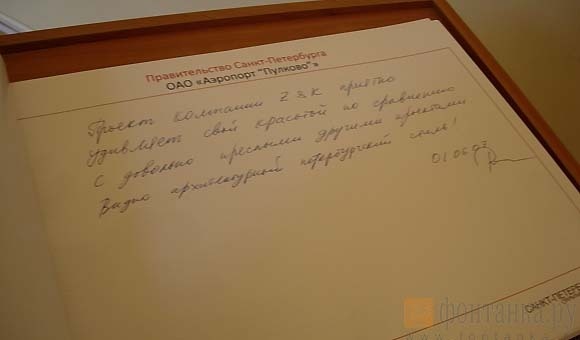 Правительство Санкт-Петербурга
ОАО «Аэропорт "Пулково"»
Проект компании Z&K приятно
удивляет свой красотой по сравнению
с довольно пресными другими проектами
Видно архитектурный петербургский стиль!
01.06.07
САНКТ-ПЕТЕ
фонтанка.ру